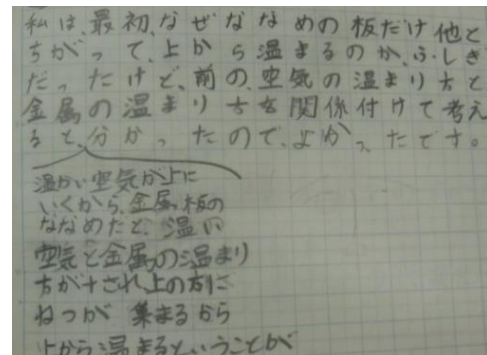 私は、最初、なぜななめの板だけ他と
ちがって、上から温まるのか、ふしぎ
だったけど、前の、空気の温まり方と
金属の温まり方を関係付けて考え
ると、分かったので、よかったです。
温かい空気が上に
いくから、金属板の
ななめだと、温い
空気と金属の温まり
方が十され上の方に
ねつが集まるから
上から温まるということが